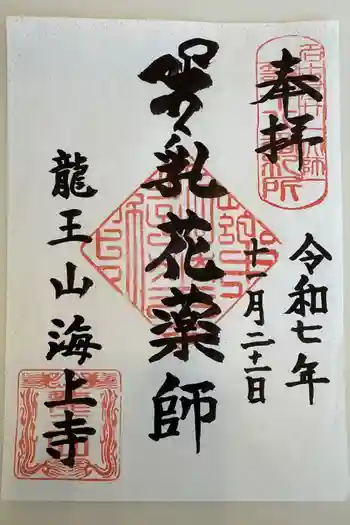 奉拝
令和七年
十一月二十一日
乳花薬師
龍王山 海上寺